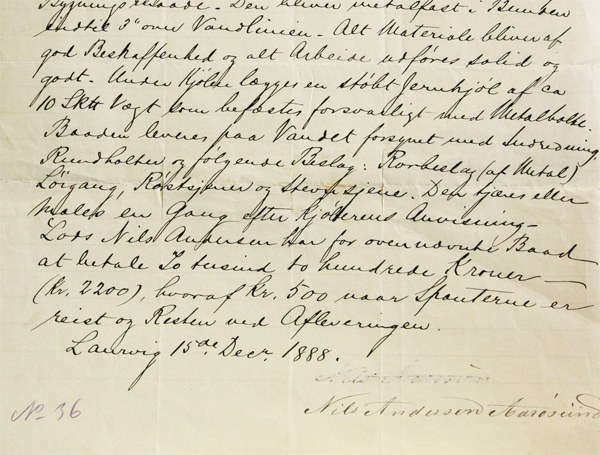 Bygningsmaade. Den bliver metalfast i Bunden
indtil 3" over Vandlinien. Alt Materiale bliver af
god Beskaffenhed og alt Arbeide udføres solid og
godt. Under Kjølen lægges en støbt Jernkjøl af ca
10 Sk℔ Vægt som befæstes forsvarligt med Metalbolte.
Baaden leveres paa Vandet forsynet med Indredning,
Rundholter og følgende Beslag: Rorbeslag (af Metal)
Løigang, Røstjerner og Stevnsjene. Den tjæres eller
males en Gang efter Kjøberens Anvisning—
Lods Nils Andersen har for ovennævnte Baad
at betale To tusind to hundrede Kroner—
(Kr. 2200), hvoraf Kr. 500 naar Spanterne er
reist og Resten ved Afleveringen.
Laurvig 15de Decr. 1888.
Nils Andersen Aarøsund
No 36